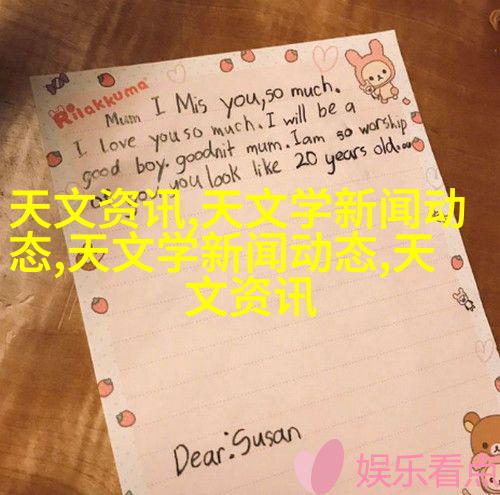 Rilakkuma
Mum I Mis you,so much.
I love you so much. I will be a
good boy. goodnit mum. I am so worship
you look like 20 years old.
天文资讯,天文学新闻动
态,天文学新闻动态,天
文资讯
Dear:Susan
娱乐看点